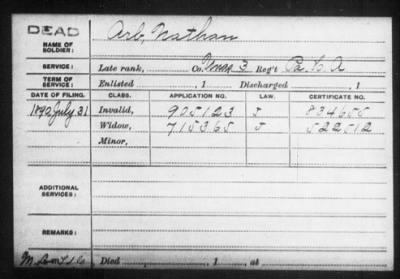 DEAD
NAME OF SOLDIER: Arb, Nathan
SERVICE: Late rank, Co. 3 Reg't Pa. H. A
TERM OF SERVICE: Enlisted , 1 Discharged , 1
DATE OF FILING. CLASS. APPLICATION NO. LAW. CERTIFICATE NO.
1892 July 31 Invalid, 925123 J 834655
Widow, 715365 J 522512
Minor,
ADDITIONAL SERVICES:
REMARKS:
Died , 1 , at